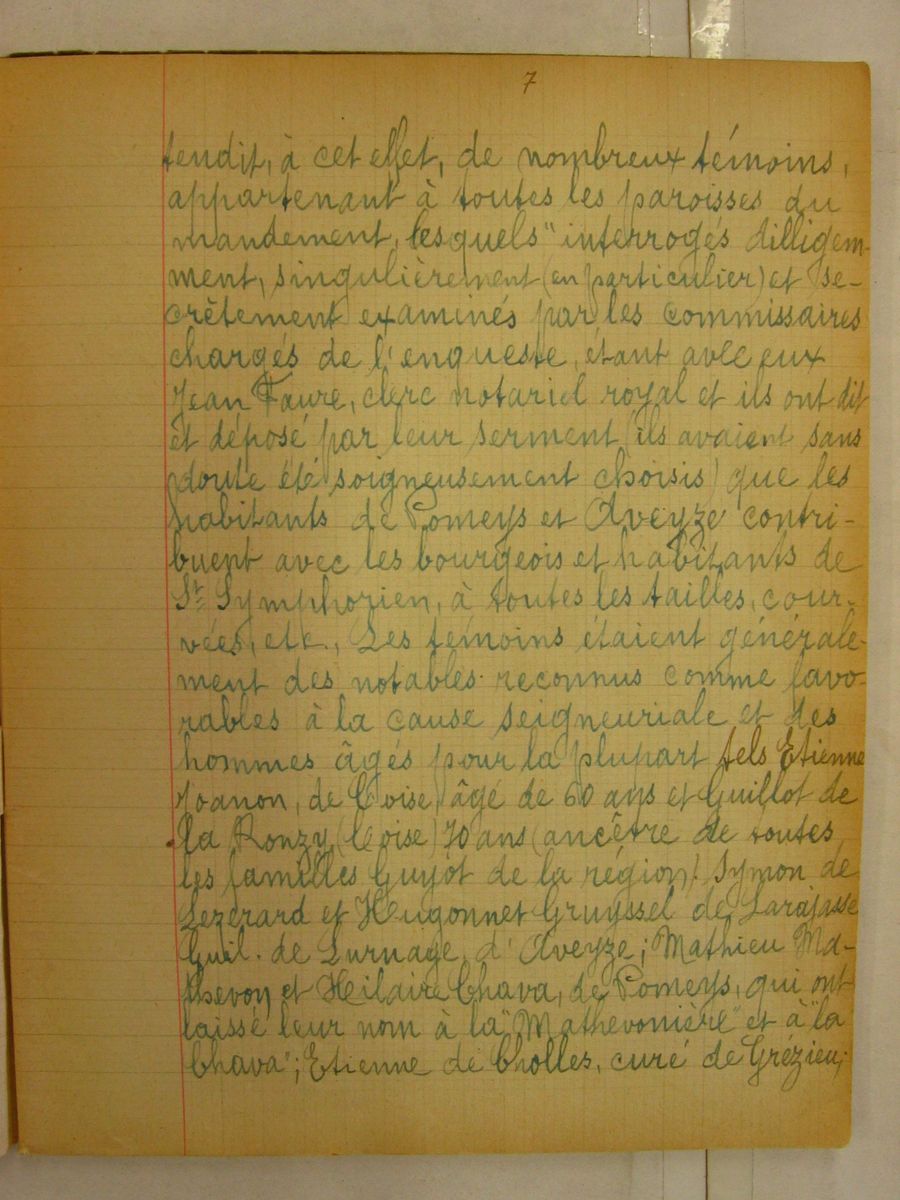 7
tendit, à cet effet, de nombreux témoins,
appartenant à toutes les paroisses du
mandement, lesquels "interrogés dilligem-
ment, singulièrement (en particulier) et se-
crètement examinés par les commissaires
chargés de l'enqueste, étant avec eux
Jean Faure, clerc notariel royal et ils ont dit
et déposé par leur serment (ils avaient sans
doute été soigneusement choisis) que les
habitants de Pomeys et Aveyze contri-
buent avec les bourgeois et habitants de
St Symphorien, à toutes les tailles, cour-
vées, etc., Les témoins étaient générale-
ment des notables reconnus comme favo-
rables à la cause seigneuriale et des
hommes âgés pour la plupart tels Etienne
Joanon, de Coise, âgé de 60 ans et Guillot de
la Ronzy (Coise) 70 ans (ancêtre de toutes
les familles Guyot de la région). Symon de
Lezerard et Hugonnet Gruyssel de Larajasse
Guil. de Lurnage, d'Aveyze; Mathieu Ma-
thevon et Hilaire Chava, de Pomeys, qui ont
laissé leur nom à la "Mathevonière" et à "la
Chava"; Etienne de Cholles, curé de Grézieu;